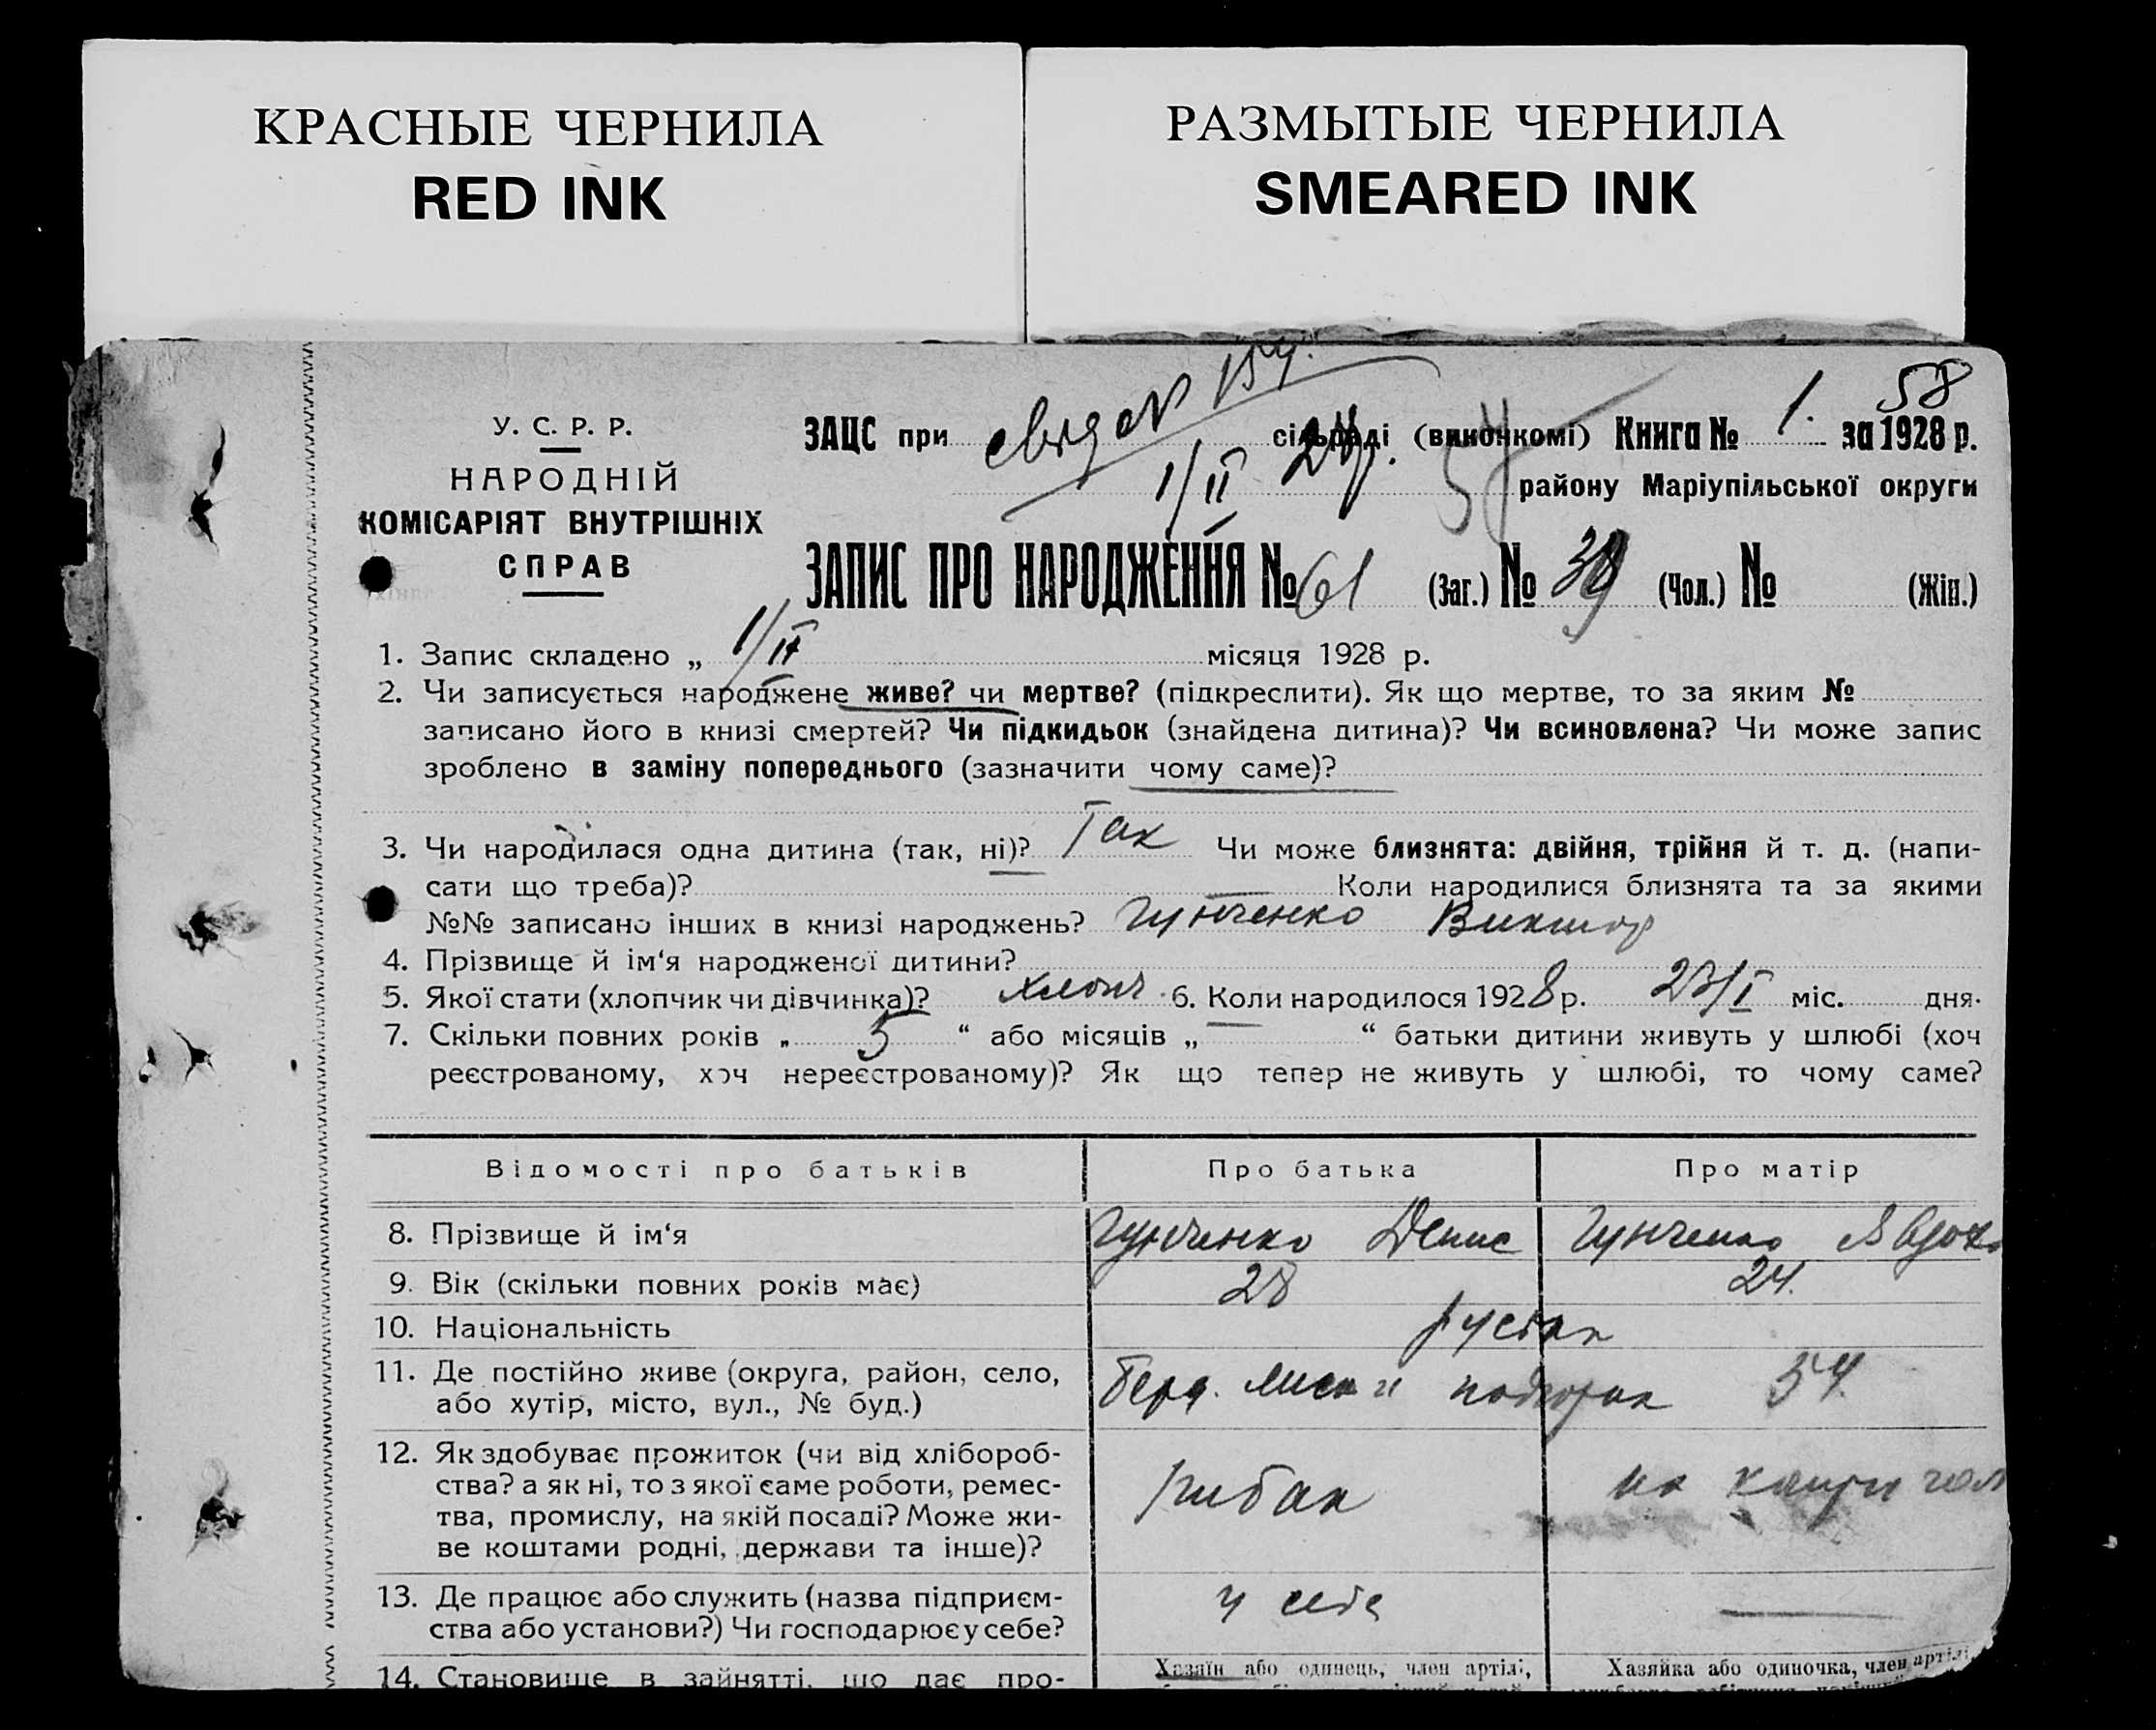 КРАСНЫЕ ЧЕРНИЛА
RED INK
РАЗМЫТЫЕ ЧЕРНИЛА
SMEARED INK
58
У. С. Р. Р.
НАРОДНІЙ
КОМІСАРІЯТ ВНУТРІШНІХ
СПРАВ
ЗАЦС при сільраді (виконкомі) Книга № 1. за 1928 р.
1/II 28р. 57 району Маріупільської округи
ЗАПИС ПРО НАРОДЖЕННЯ № 61 (Заг.) № 39 (Чол.) № (Жін.)
1. Запис складено „ 1/II місяця 1928 р.
2. Чи записується народжене живе? чи мертве? (підкреслити). Як що мертве, то за яким №
записано його в книзі смертей? Чи підкидьок (знайдена дитина)? Чи всиновлена? Чи може запис
зроблено в заміну попереднього (зазначити чому саме)?
3. Чи народилася одна дитина (так, ні)? Так Чи може близнята: двійня, трійня й т. д. (напи-
сати що треба)? Коли народилися близнята та за якими
№№ записано інших в книзі народжень?
Гунченко Виктор
4. Прізвище й ім‘я народженої дитини?
5. Якої стати (хлопчик чи дівчинка)? хлопч. 6. Коли народилося 1928 р. 23/I міс. дня.
7. Скільки повних років „ 5 “ або місяців „ “ батьки дитини живуть у шлюбі (хоч
реєстрованому, хоч нереєстрованому)? Як що тепер не живуть у шлюбі, то чому саме?
Відомості про батьків Про батька Про матір
8. Прізвище й ім‘я Гунченко Денис Гунченко
9. Вік (скільки повних років має) 28 24.
10. Національність
11. Де постійно живе (округа, район, село, Берд. 54.
або хутір, місто, вул., № буд.)
12. Як здобуває прожиток (чи від хлібороб-
ства? а як ні, то з якої саме роботи, ремес- рибак на
тва, промислу, на якій посаді? Може жи-
ве коштами родні, держави та інше)?
13. Де працює або служить (назва підприєм- у себе
ства або установи?) Чи господарює у себе?
14. Становище в зайнятті, що дає про- Хазяїн або одинець, член артілі, Хазяйка або одиночка, член артілі,